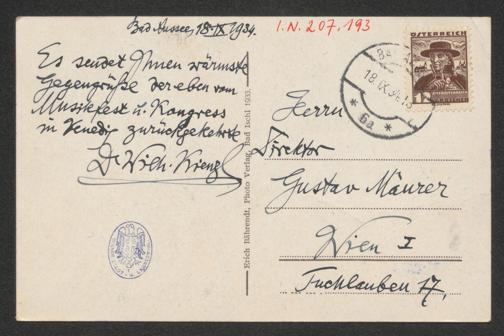 Bad Aussee, 18. IX 1934.
I.N. 207.193
Es sendet Ihnen wärmste
Gegengrüße der eben vom
Musikfest u. Kongress
in Venedig zurückgekehrte
Dr Wilh. Kienzl
ÖSTERREICH
18. IX. 34
* 6a *
Herrn
Direktor
Gustav Mäurer
Wien I
Tuchlauben 17,
Erich Bährendt, Photo Verlag, Bad Ischl 1933.